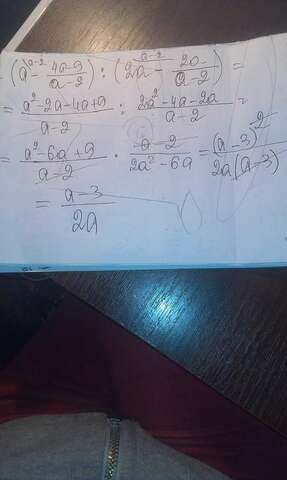 (a^{a-2} - \frac{4a-9}{a-2}) : (2a^{a-2} - \frac{2a}{a-2}) =
= \frac{a^2-2a-4a+9}{a-2} : \frac{2a^2-4a-2a}{a-2} =
= \frac{a^2-6a+9}{a-2} · \frac{a-2}{2a^2-6a} = \frac{(a-3)^2}{2a(a-3)}
= \frac{a-3}{2a}